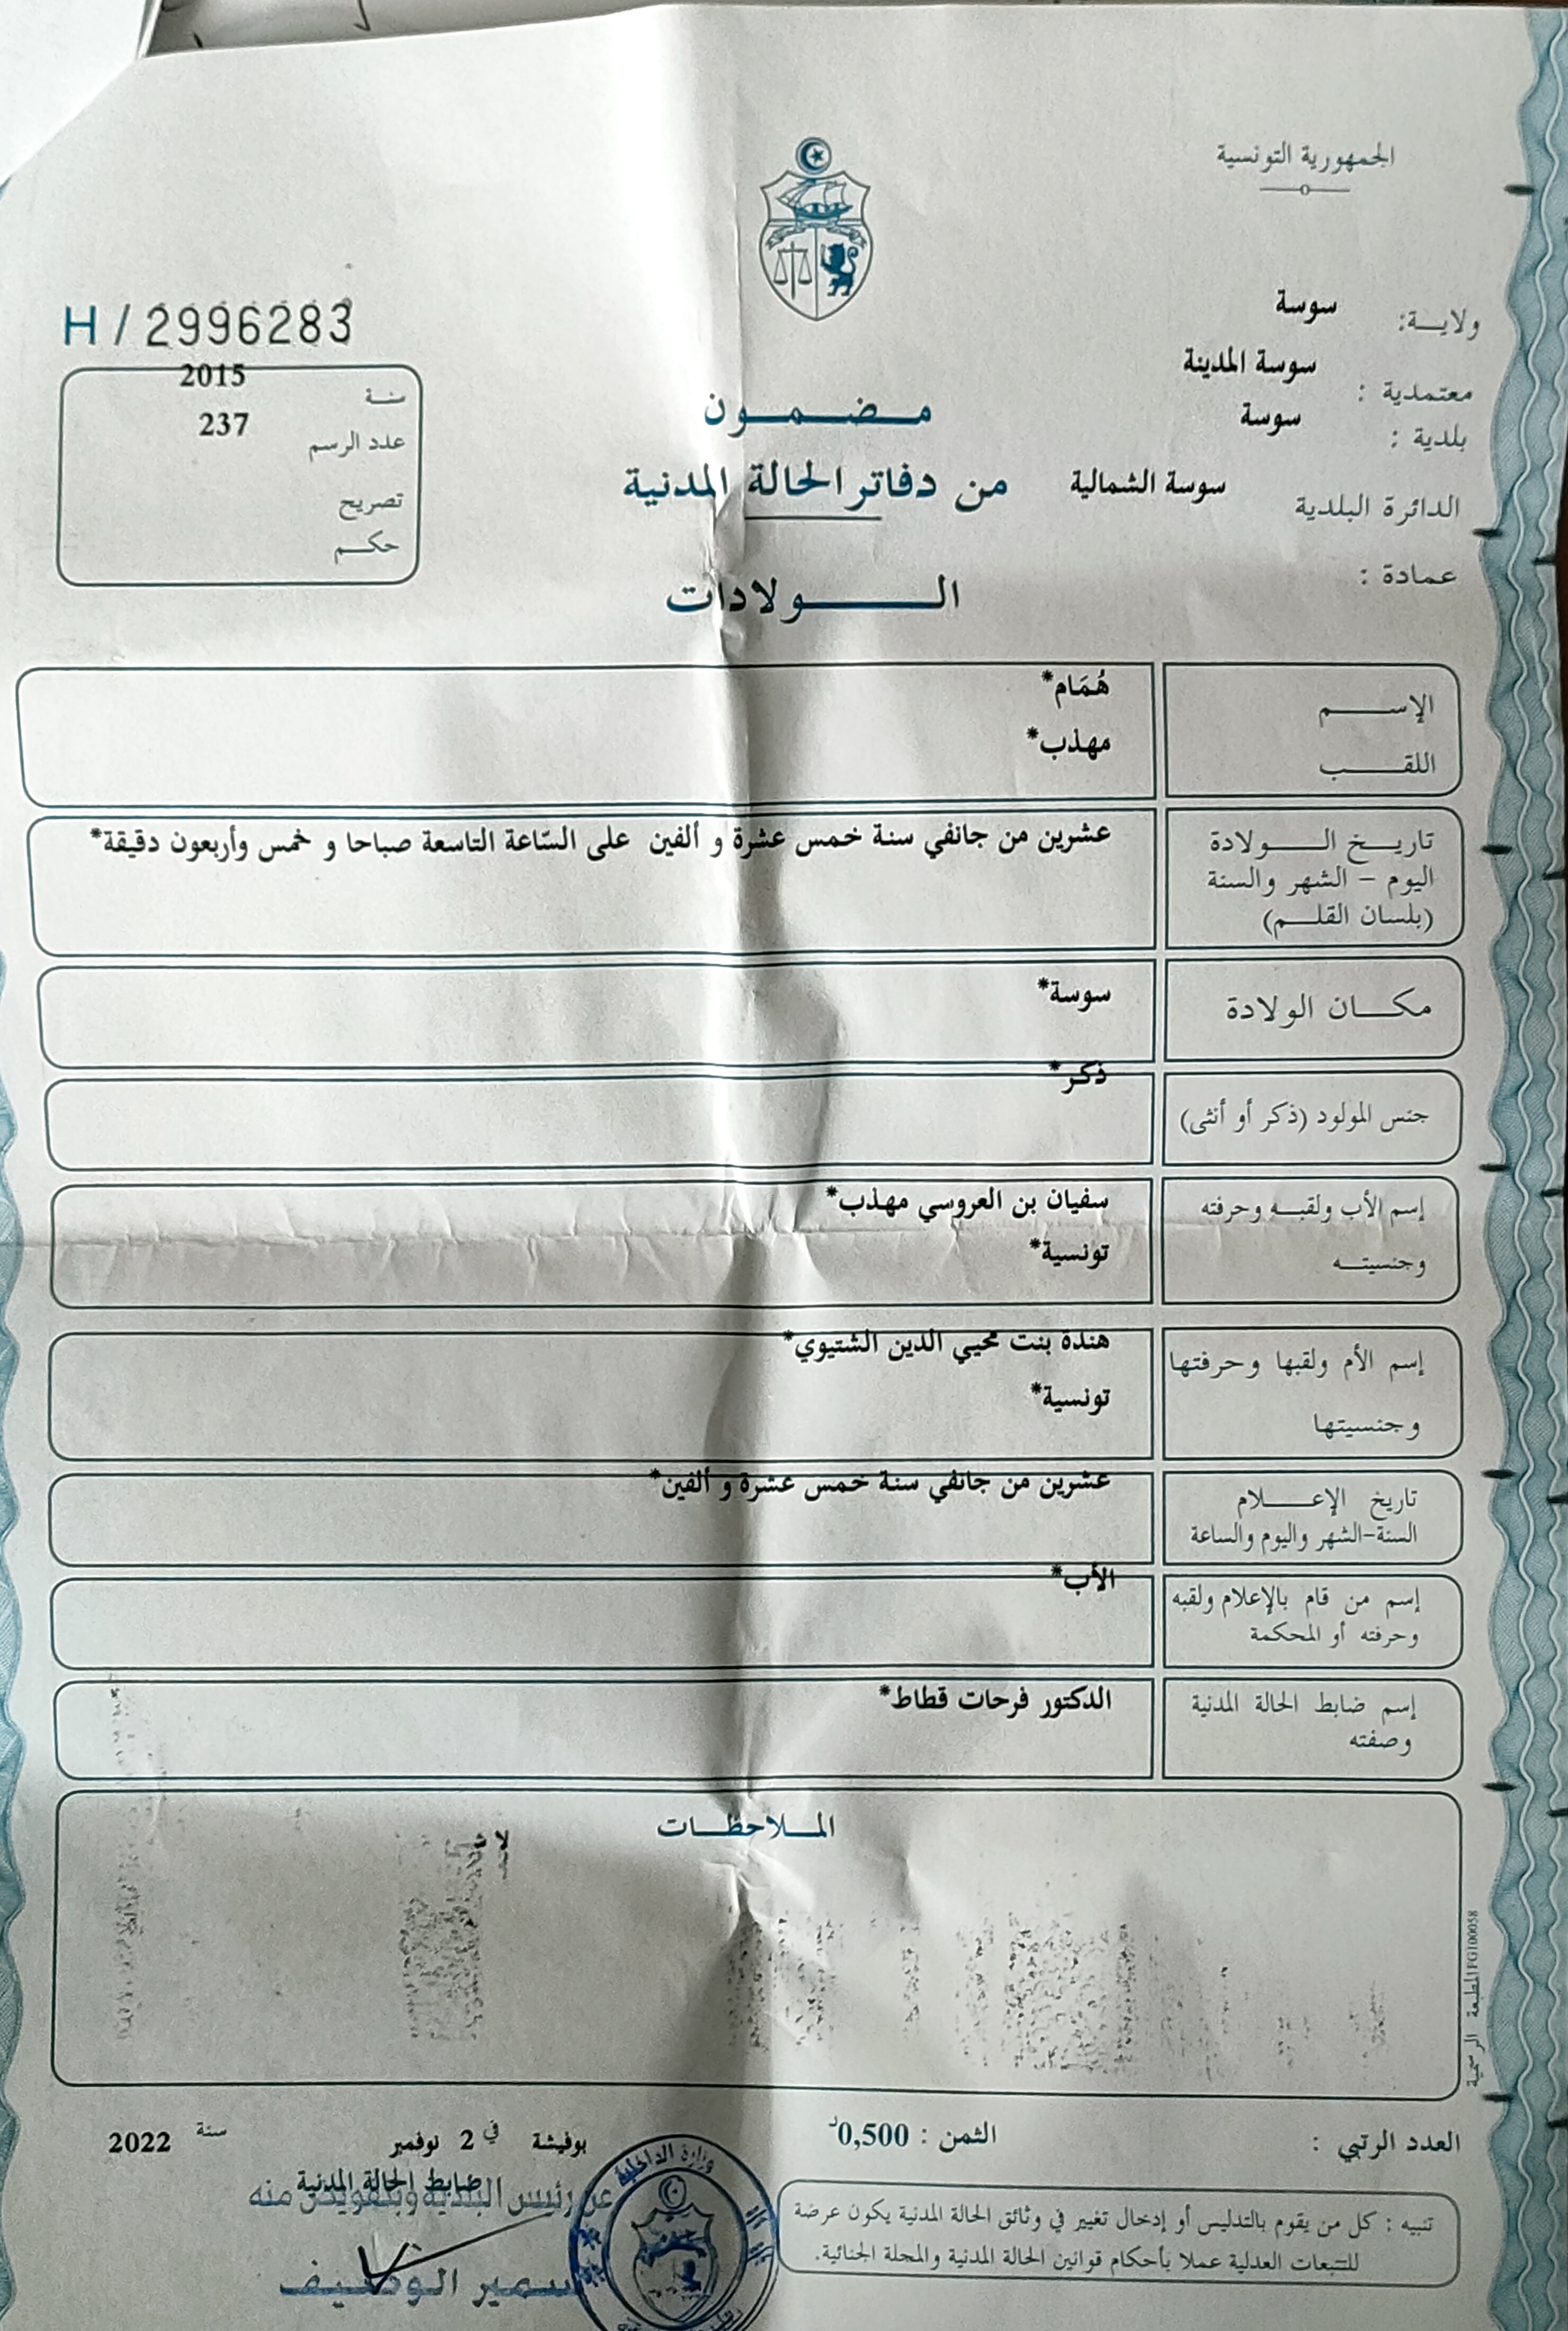 الجمهورية التونسية
ولايـــة: سوسة
معتمدية : سوسة المدينة
بلدية : سوسة
الدائرة البلدية سوسة الشمالية
عمادة :
H / 2996283
سنة 2015
عدد الرسم 237
تصريح
حكم
مضمون
من دفاتر الحالة المدنية
الولادات
الإسم هُمَام*
اللقب مهذب*
تاريخ الولادة عشرين من جانفي سنة خمس عشرة و ألفين على السّاعة التاسعة صباحا و خمس وأربعون دقيقة*
اليوم - الشهر والسنة
(بلسان القلم)
مكان الولادة سوسة*
جنس المولود (ذكر أو أنثى) ذكر*
إسم الأب ولقبه وحرفته سفيان بن العروسي مهذب*
وجنسيته تونسية*
إسم الأم ولقبها وحرفتها هندة بنت محيي الدين الشتيوي*
وجنسيتها تونسية*
تاريخ الإعلام عشرين من جانفي سنة خمس عشرة و ألفين*
السنة-الشهر واليوم والساعة
إسم من قام بالإعلام ولقبه الأب*
وحرفته أو المحكمة
إسم ضابط الحالة المدنية الدكتور فرحات قطاط*
وصفته
الملاحظات
المطبعة الرسمية FG100058
العدد الرتبي :
الثمن : 0,500د
بوفيشة في 2 نوفمبر سنة 2022
ضابط الحالة المدنية
عن رئيس البلدية وبتفويض منه
سمير الوصيف
وزارة الداخلية
تنبيه : كل من يقوم بالتدليس أو إدخال تغيير في وثائق الحالة المدنية يكون عرضة
للتتبعات العدلية عملا بأحكام قوانين الحالة المدنية والمجلة الجنائية.